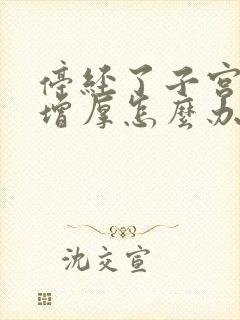 停经了子宫
增厚怎麼办
沈交宣